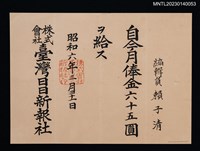 MNTL20230140053
編輯員 賴子清
自今月俸金六十五圓
ヲ給ス
昭和六年三月十一日
株式會社臺灣日日新報社